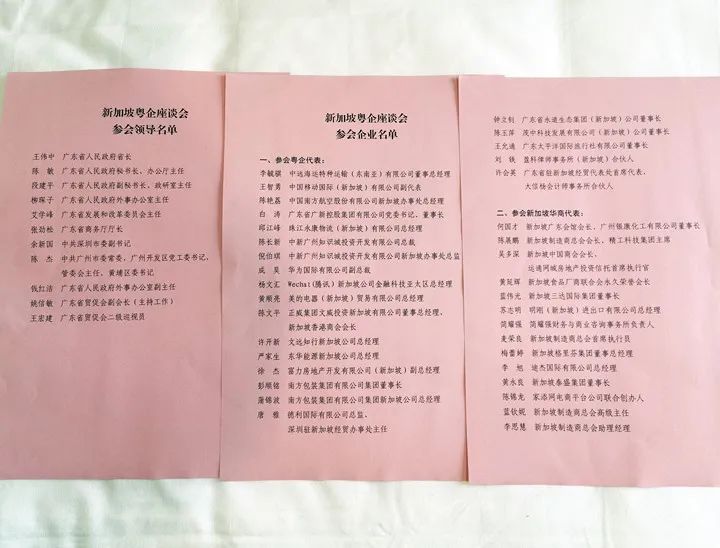 新加坡粤企座谈会
参会领导名单
王伟中 广东省人民政府省长
陈敏 广东省人民政府秘书长、办公厅主任
段建平 广东省人民政府副秘书长、政研室主任
柳琛子 广东省人民政府外事办公室主任
艾学峰 广东省发展和改革委员会主任
张劲松 广东省商务厅厅长
余新国 中共深圳市委副书记
陈杰 中共广州市委常委、广州开发区党工委书记、
管委会主任、黄埔区委书记
钱红洁 广东省人民政府外事办公室副主任
姚信敏 广东省贸促会副会长（主持工作）
王宏建 广东省贸促会二级巡视员
新加坡粤企座谈会
参会企业名单
一、参会粤企代表：
李毓祺 中远海运特种运输（东南亚）有限公司董事总经理
王智勇 中国移动国际（新加坡）有限公司副代表
陈艳荔 中国南方航空股份有限公司新加坡办事处总经理
白涛 广东省广新控股集团有限公司党委书记、董事长
邱江峰 珠江水康物流（新加坡）有限公司总经理
陈长新 中新广州知识城投资开发有限公司总裁
倪伯琪 中新广州知识城投资开发有限公司新加坡办事处总监
成昊 华为国际有限公司副总裁
杨文汇 Wechat（腾讯）新加坡公司金融科技亚太区总经理
黄顺亮 美的电器（新加坡）贸易有限公司总经理
陈文平 正威集团文威投资新加坡有限公司董事总经理、
新加坡香港商会会长
许开新 文远知行新加坡公司总经理
严家生 东华能源新加坡公司总经理
徐杰 富力房地产开发有限公司（新加坡）副总经理
彭顺铭 南方包装集团有限公司集团董事长
蒲锦波 南方包装集团有限公司集团新加坡公司总经理
唐雅 德利国际有限公司总监、
深圳驻新加坡经贸办事处主任
钟立钊 广东省永道生态集团（新加坡）公司董事长
陈玉萍 茂中科技发展有限公司（新加坡）公司董事长
王允通 广东太平洋国际旅行社有限公司董事长
刘钱 盈科律师事务所（新加坡）合伙人
许会英 广东省驻新加坡经贸代表处首席代表、
大信杨会计师事务所合伙人
二、参会新加坡华商代表：
何国才 新加坡广东会馆会长、广州银康化工有限公司董事长
陈展鹏 新加坡制造商总会会长、精工科技集团主席
吴多深 新加坡中国商会会长、
运通网城房地产投资信托首席执行官
黄延辉 新加坡食品厂商联合会永久荣誉会长
蓝伟光 新加坡三达国际集团董事长
苏志明 明刚（新加坡）进出口有限公司总经理
简耀强 简耀强财务与商业咨询事务所负责人
麦荣良 新加坡制造商总会首席执行员
梅蕾婷 新加坡格里芬集团董事总经理
李旭 迪杰国际有限公司总经理
黄永良 新加坡泰盛集团董事长
陈锦龙 家添网电商平台公司联合创办人
蓝钦妮 新加坡制造商总会高级主任
李思慧 新加坡制造商总会助理经理